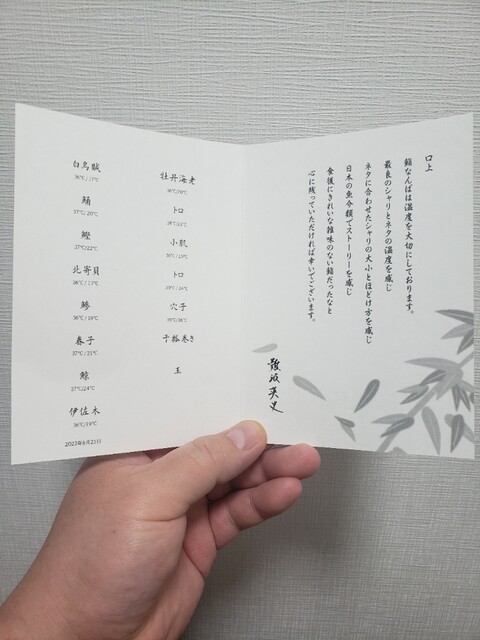 口上
鮨なんばは温度を大切にしております。
最良のシャリとネタの温度を感じ
ネタに合わせたシャリの大小とほどけ方を感じ
日本の魚介類でストーリーを感じ
食後にきれいな雑味のない鮨だったなと
心に残っていただければ幸いでございます。
難波英史
白烏賊
36℃/17℃
鯖
37℃/20℃
鰹
37℃/22℃
北寄貝
36℃/17℃
鯵
36℃/18℃
春子
37℃/21℃
鯨
37℃/24℃
伊佐木
36℃/19℃
牡丹海老
トロ
小肌
トロ
穴子
干瓢巻き
玉
2023年6月23日